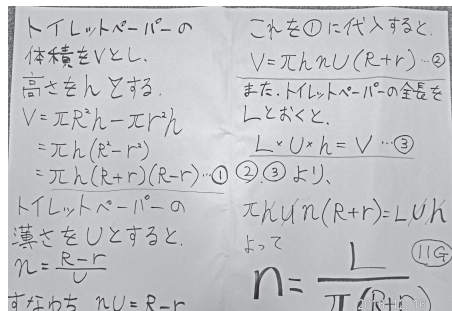 トイレットペーパーの
体積をVとし、
高さをhとする.
V=πR²h-πr²h
=πh(R²-r²)
=πh(R+r)(R-r)…①
トイレットペーパーの
薄さをUとすると、
n=\frac{R-r}{U}
すなわち nU=R-r
これを①に代入すると、
V=πhnU(R+r)…②
また、トイレットペーパーの全長を
Lとおくと、
L×U×h=V …③
②,③より、
πhUn(R+r)=LUh
よって
11G
n=\frac{L}{π(R+r)}